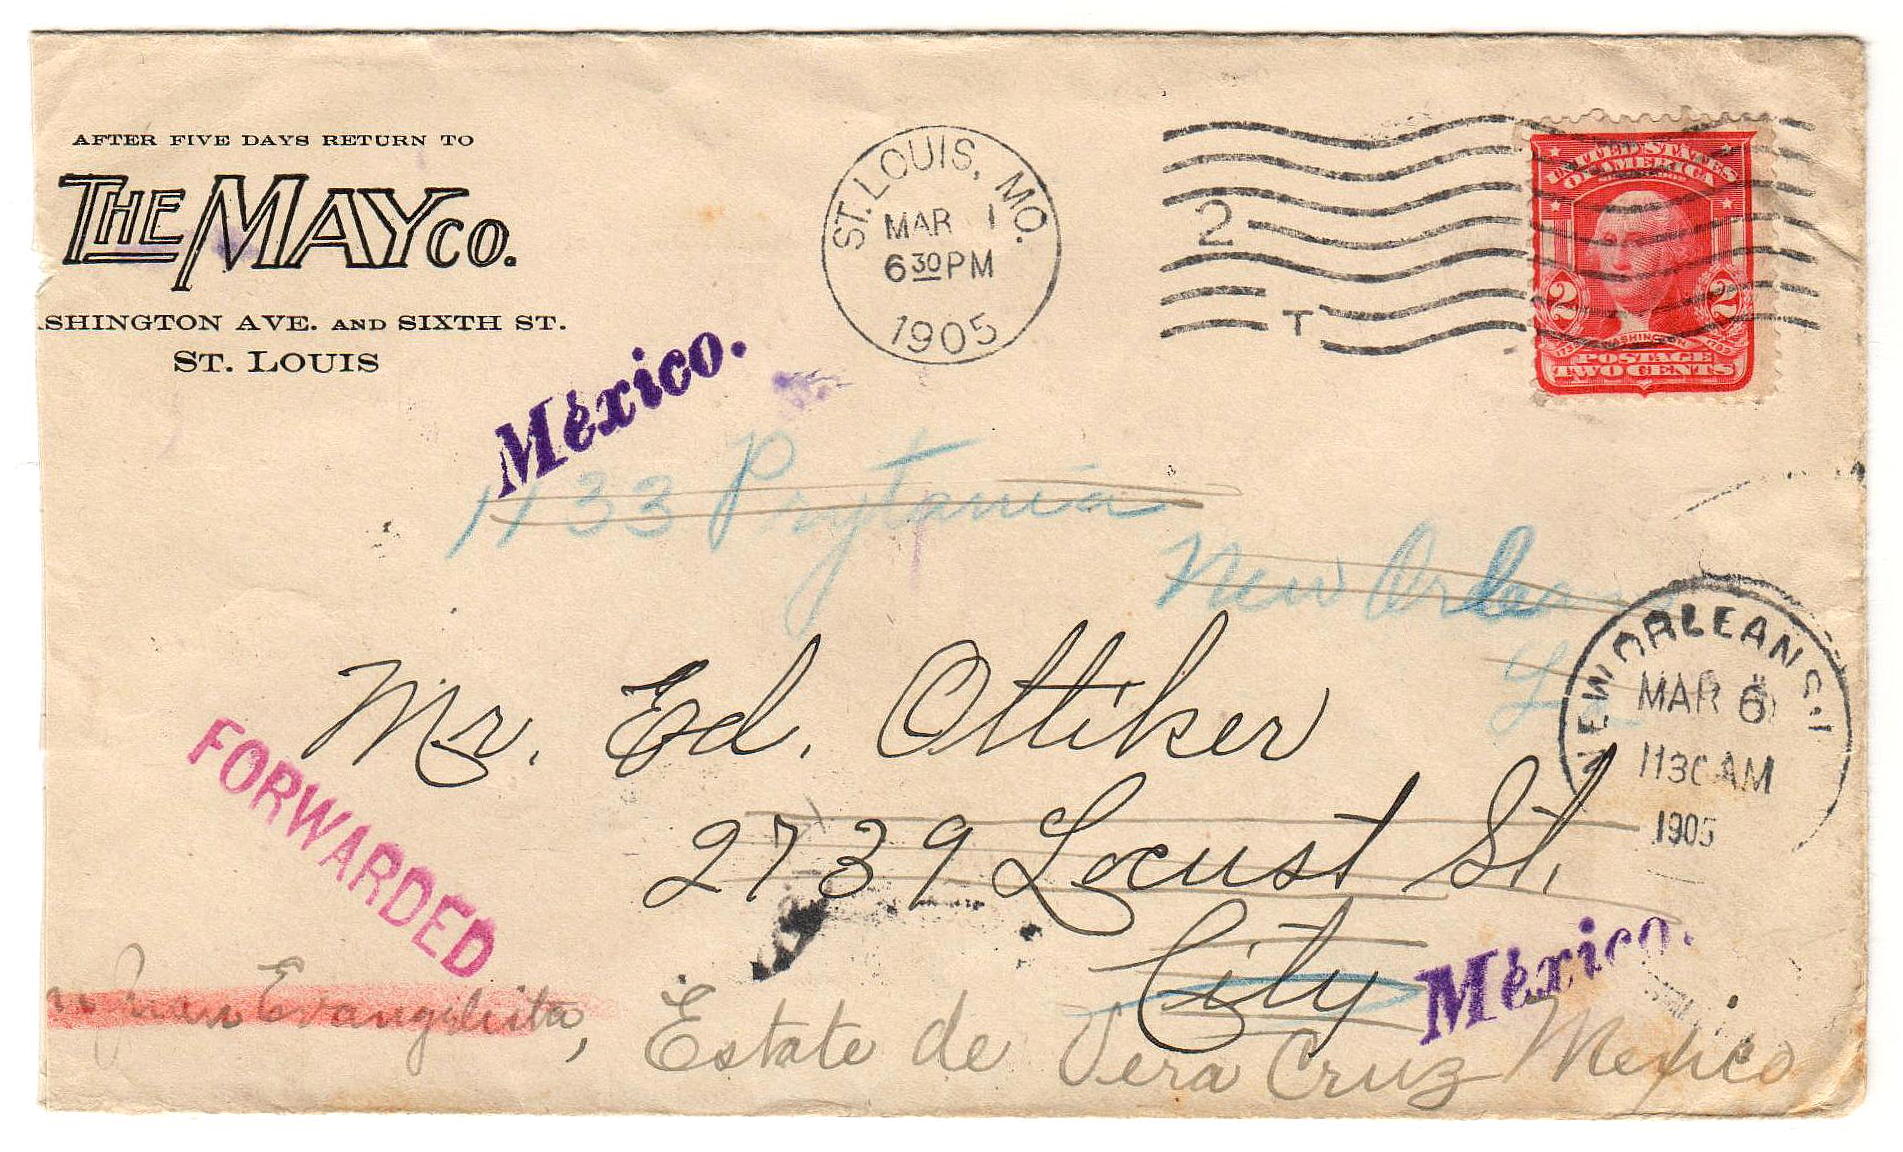 AFTER FIVE DAYS RETURN TO
THE MAY CO.
SHINGTON AVE. AND SIXTH ST.
ST. LOUIS
ST. LOUIS, MO.
MAR 1
6 30 PM
1905
2
T
UNITED STATES
OF AMERICA
2 2
WASHINGTON
POSTAGE
TWO CENTS
México.
1133 Prytania
New Orlea
La
NEW ORLEANS
MAR 6
1130 AM
1905
Mr. Ed. Ottiker
2739 Locust St.
City
FORWARDED
México.
n Juan Evangelista, Estate de Vera Cruz Mexico